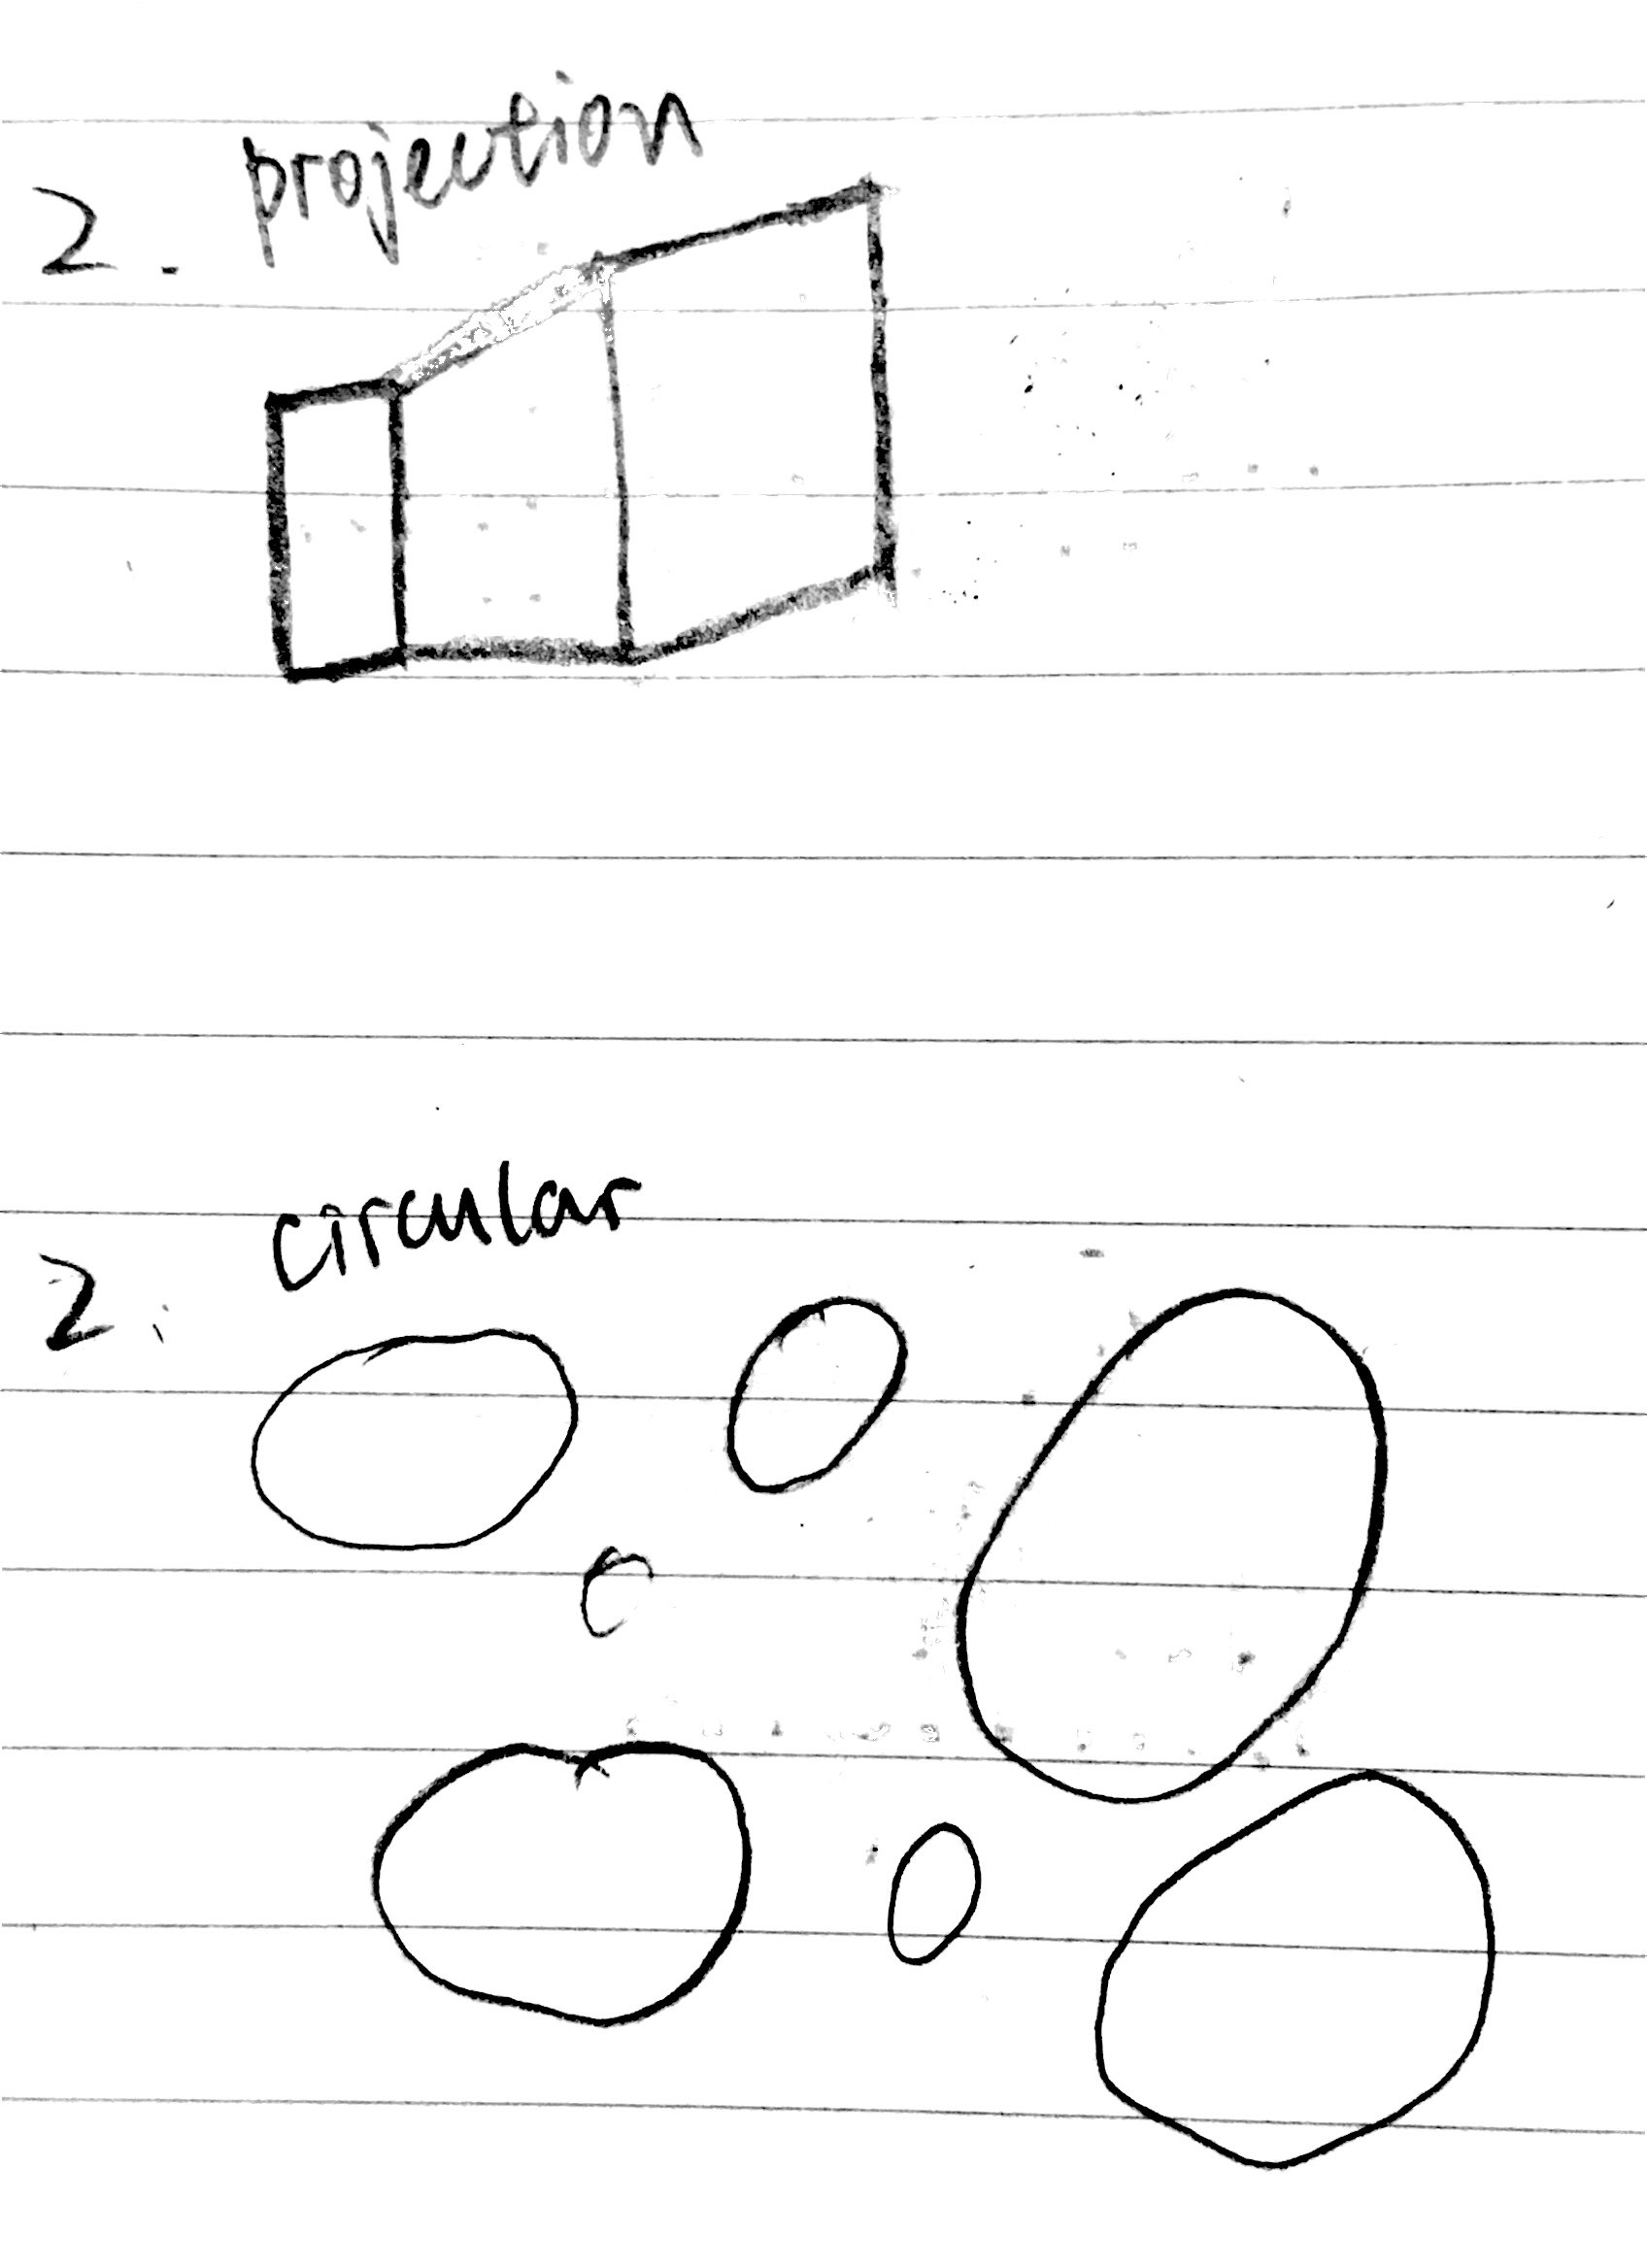 projection
2.
circular
2.